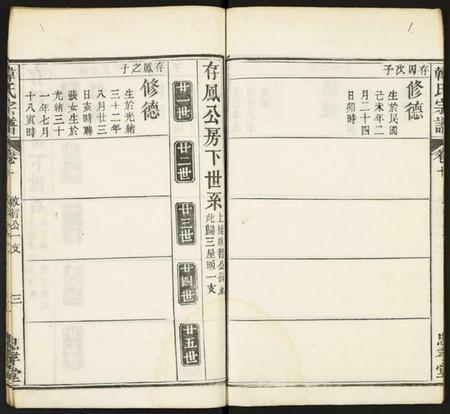 韓氏宗譜
卷十
忠孝堂
存因次子
修德
生於民國
己未年二
月二十四
日卯時
存鳳公房下世系
此歸三屋畈一支
廿一世
廿二世
廿三世
廿四世
廿五世
存鳳之子
修德
生於光緒
三十二年
八月廿三
日亥時聘
張女生於
光緒三十
一年七月
十八寅時
韓氏宗譜
卷十
啟智公一支
三
忠孝堂